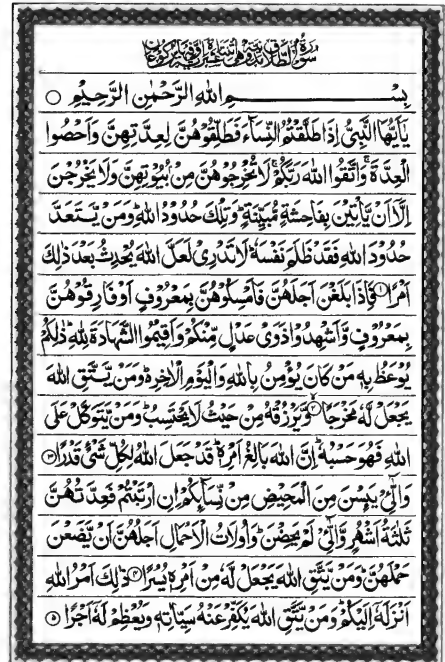 سُورَةُ الطَّلَاقِ مَدَنِيَّةٌ وَهِيَ اثْنَتَا عَشْرَةَ اٰيَةً وَفِيهَا رُكُوعَانِ
بِسْمِ اللهِ الرَّحْمٰنِ الرَّحِيْمِ ○
يٰٓاَيُّهَا النَّبِيُّ اِذَا طَلَّقْتُمُ النِّسَآءَ فَطَلِّقُوْهُنَّ لِعِدَّتِهِنَّ وَاَحْصُوا
الْعِدَّةَ ۚ وَاتَّقُوا اللهَ رَبَّكُمْ ۚ لَا تُخْرِجُوْهُنَّ مِنْۢ بُيُوْتِهِنَّ وَلَا يَخْرُجْنَ
اِلَّآ اَنْ يَّاْتِيْنَ بِفَاحِشَةٍ مُّبَيِّنَةٍ ؕ وَتِلْكَ حُدُوْدُ اللهِ ؕ وَمَنْ يَّتَعَدَّ
حُدُوْدَ اللهِ فَقَدْ ظَلَمَ نَفْسَهٗ ؕ لَا تَدْرِيْ لَعَلَّ اللهَ يُحْدِثُ بَعْدَ ذٰلِكَ
اَمْرًا ۝۱ فَاِذَا بَلَغْنَ اَجَلَهُنَّ فَاَمْسِكُوْهُنَّ بِمَعْرُوْفٍ اَوْ فَارِقُوْهُنَّ
بِمَعْرُوْفٍ وَّاَشْهِدُوْا ذَوَيْ عَدْلٍ مِّنْكُمْ وَاَقِيْمُوا الشَّهَادَةَ لِلّٰهِ ؕ ذٰلِكُمْ
يُوْعَظُ بِهٖ مَنْ كَانَ يُؤْمِنُ بِاللهِ وَالْيَوْمِ الْاٰخِرِ ؕ وَمَنْ يَّتَّقِ اللهَ
يَجْعَلْ لَّهٗ مَخْرَجًا ۝۲ وَّيَرْزُقْهُ مِنْ حَيْثُ لَا يَحْتَسِبُ ؕ وَمَنْ يَّتَوَكَّلْ عَلَى
اللهِ فَهُوَ حَسْبُهٗ ؕ اِنَّ اللهَ بَالِغُ اَمْرِهٖ ؕ قَدْ جَعَلَ اللهُ لِكُلِّ شَيْءٍ قَدْرًا ۝۳
وَالّٰٓـِٔيْ يَئِسْنَ مِنَ الْمَحِيْضِ مِنْ نِّسَآئِكُمْ اِنِ ارْتَبْتُمْ فَعِدَّتُهُنَّ
ثَلٰثَةُ اَشْهُرٍ وَّالّٰٓـِٔيْ لَمْ يَحِضْنَ ؕ وَاُولَاتُ الْاَحْمَالِ اَجَلُهُنَّ اَنْ يَّضَعْنَ
حَمْلَهُنَّ ؕ وَمَنْ يَّتَّقِ اللهَ يَجْعَلْ لَّهٗ مِنْ اَمْرِهٖ يُسْرًا ۝۴ ذٰلِكَ اَمْرُ اللهِ
اَنْزَلَهٗٓ اِلَيْكُمْ ؕ وَمَنْ يَّتَّقِ اللهَ يُكَفِّرْ عَنْهُ سَيِّاٰتِهٖ وَيُعْظِمْ لَهٗٓ اَجْرًا ۝۵